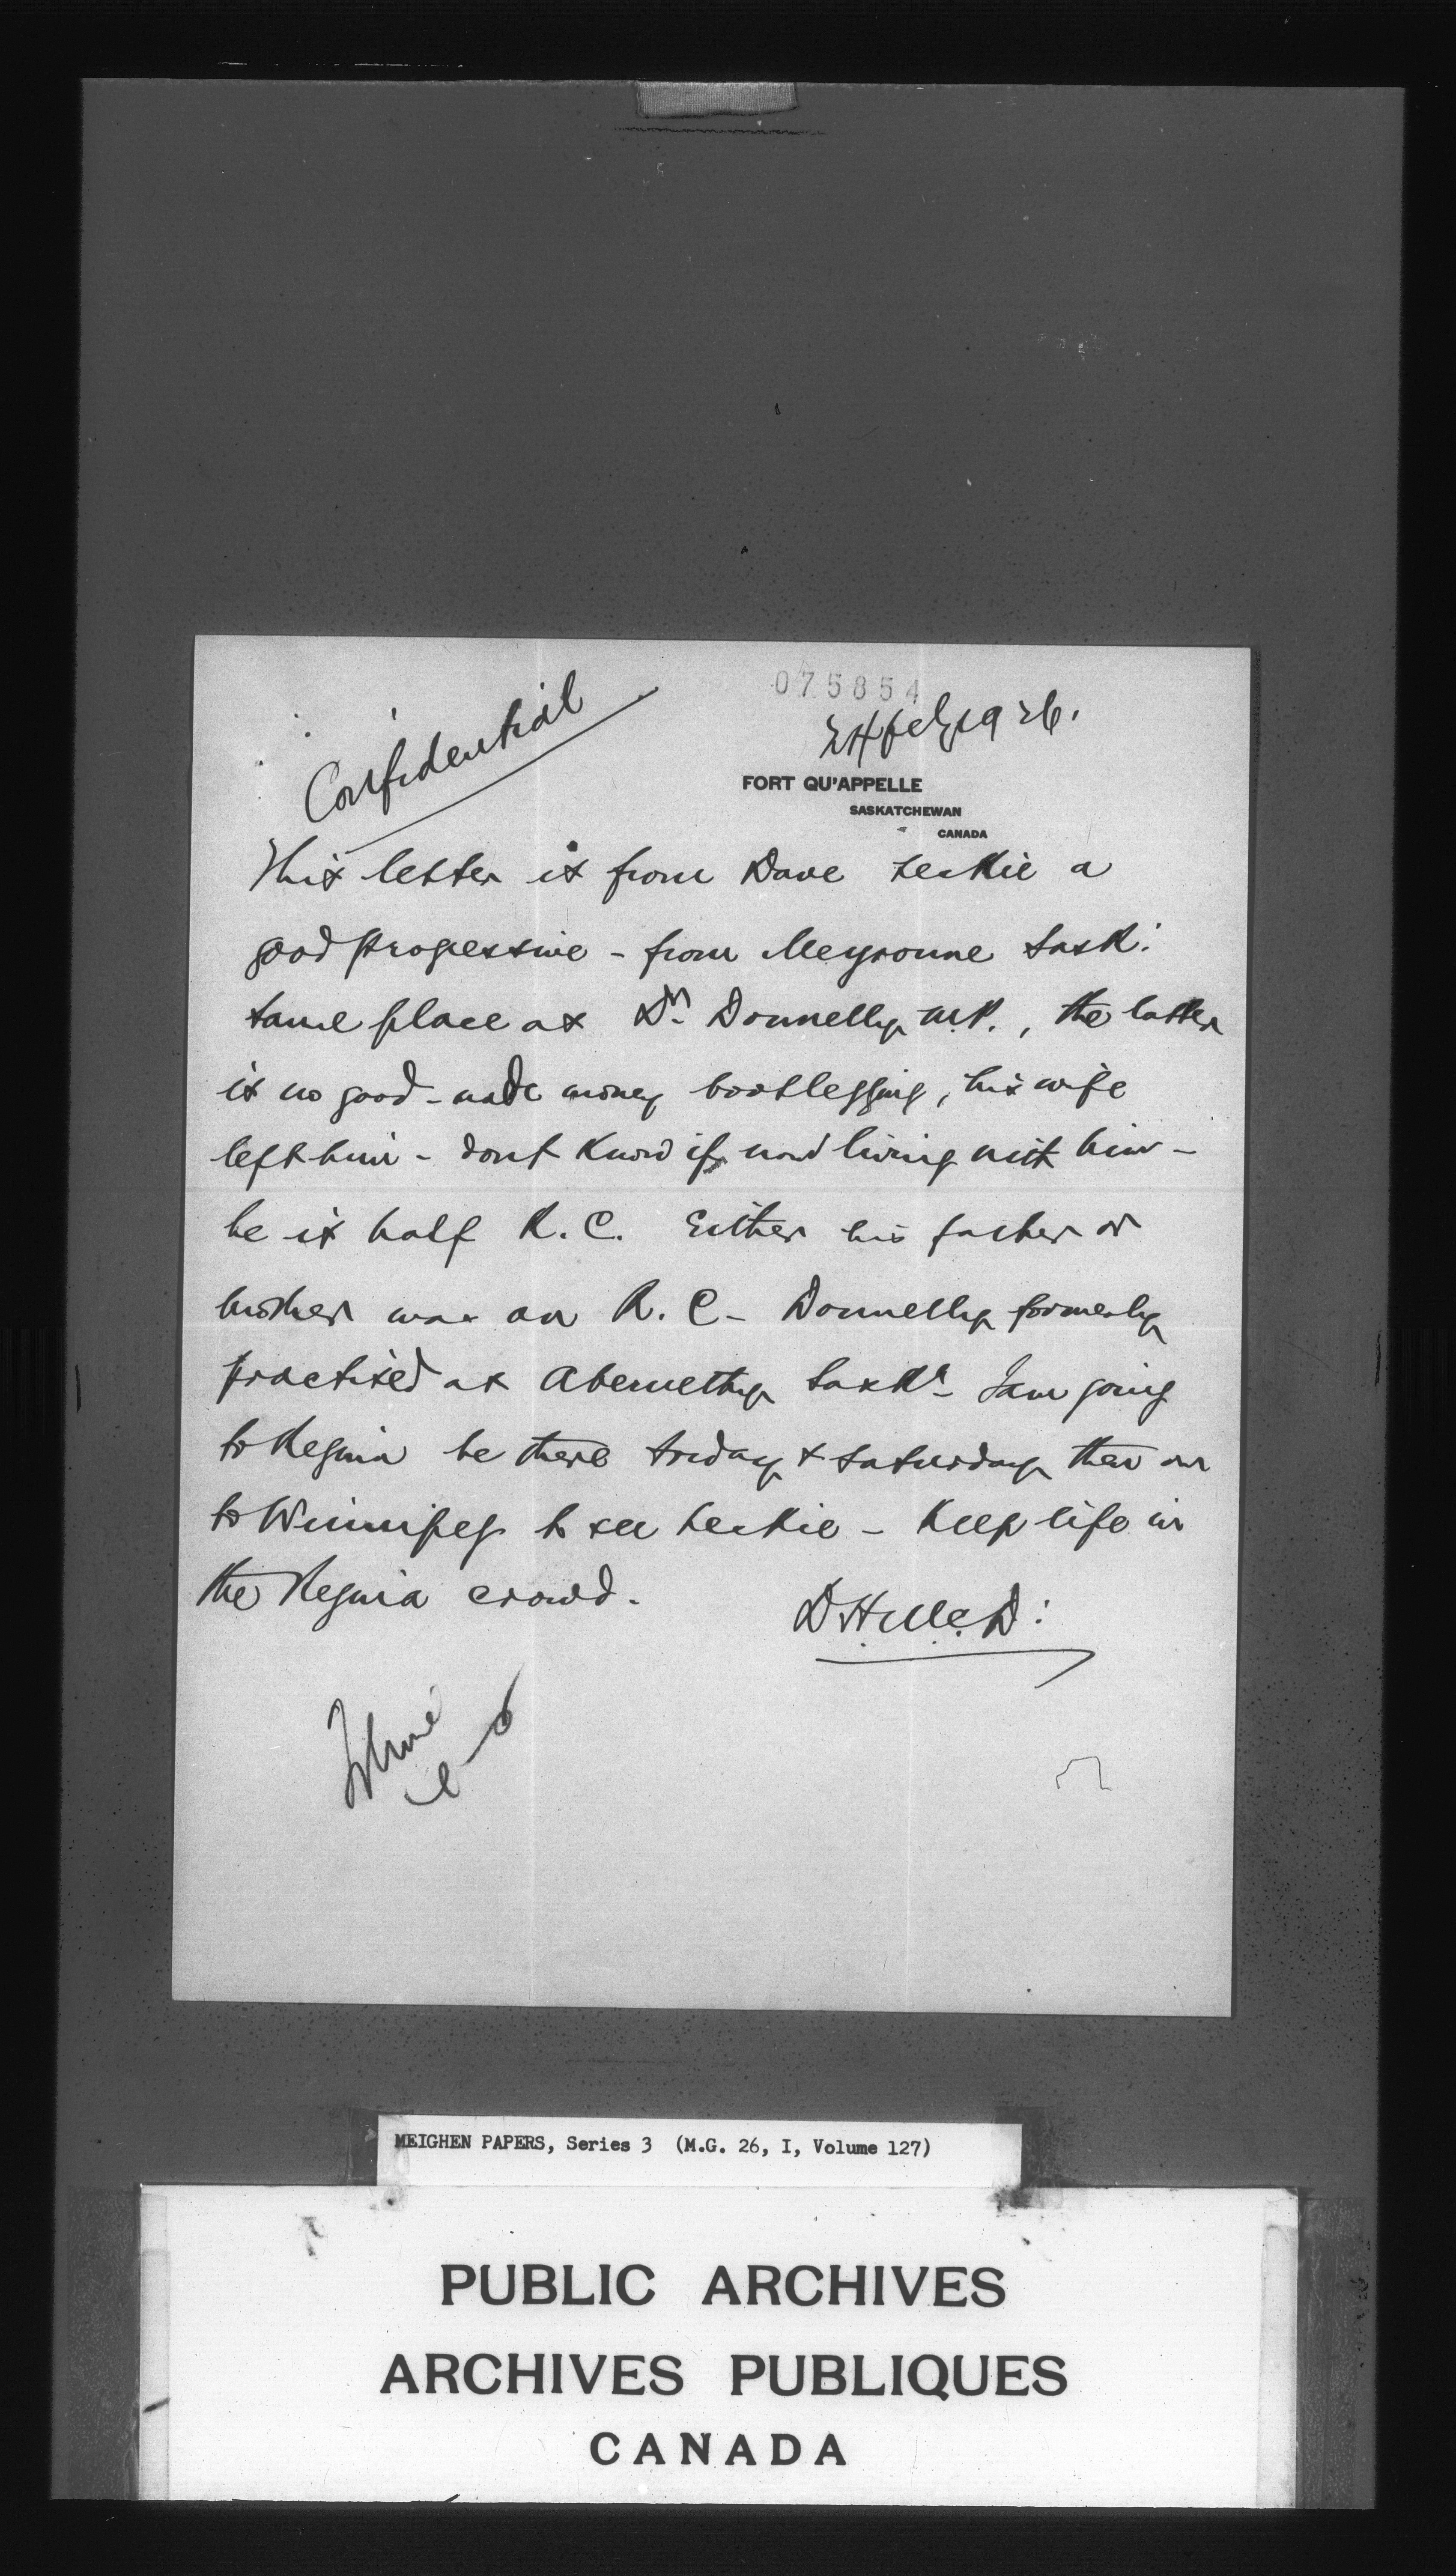 075854
Confidential
24 feb 1926.
FORT QU'APPELLE
SASKATCHEWAN
CANADA
This letter is from Dave Leckie a
good progessive - from Meyronne Sask:
same place as Dr. Donnelly M.P., the latter
is no good - made money bootlegging, his wife
left him - dont know if now living with him -
he is half R.C. Either his father or
mother was an R.C - Donnelly formerly
practised at Abernethy Sask - I am going
to Regina be there Friday & Saturday then on
to Winnipeg to see Leckie - Keep life in
the Regina crowd.
D H McD:
MEIGHEN PAPERS, Series 3 (M.G. 26, I, Volume 127)
PUBLIC ARCHIVES
ARCHIVES PUBLIQUES
CANADA